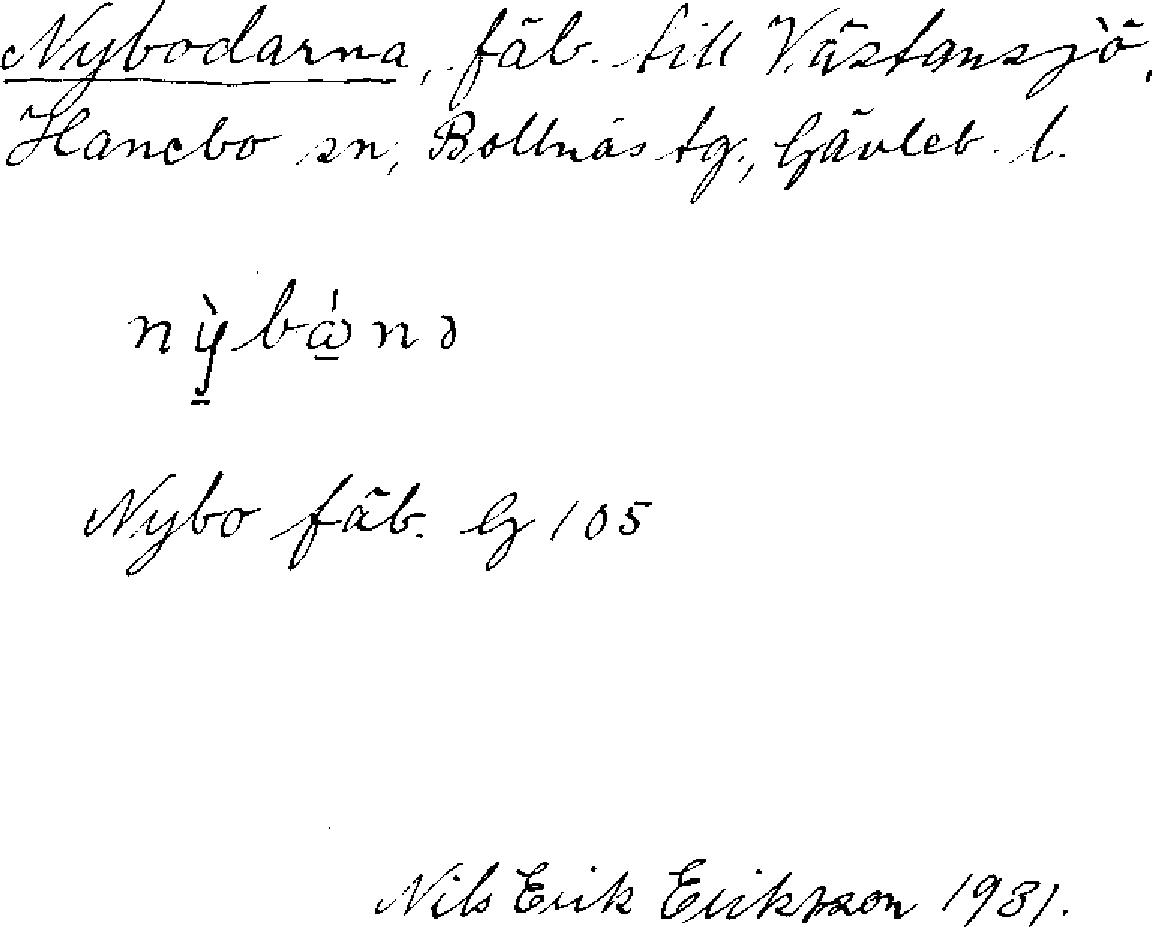 Nybodarna, fäb. till Västansjö,
Hanebo sn, Bollnäs tg., Gävleb. l.
Nybo fäb. G 105
Nils Erik Eriksson 1931.